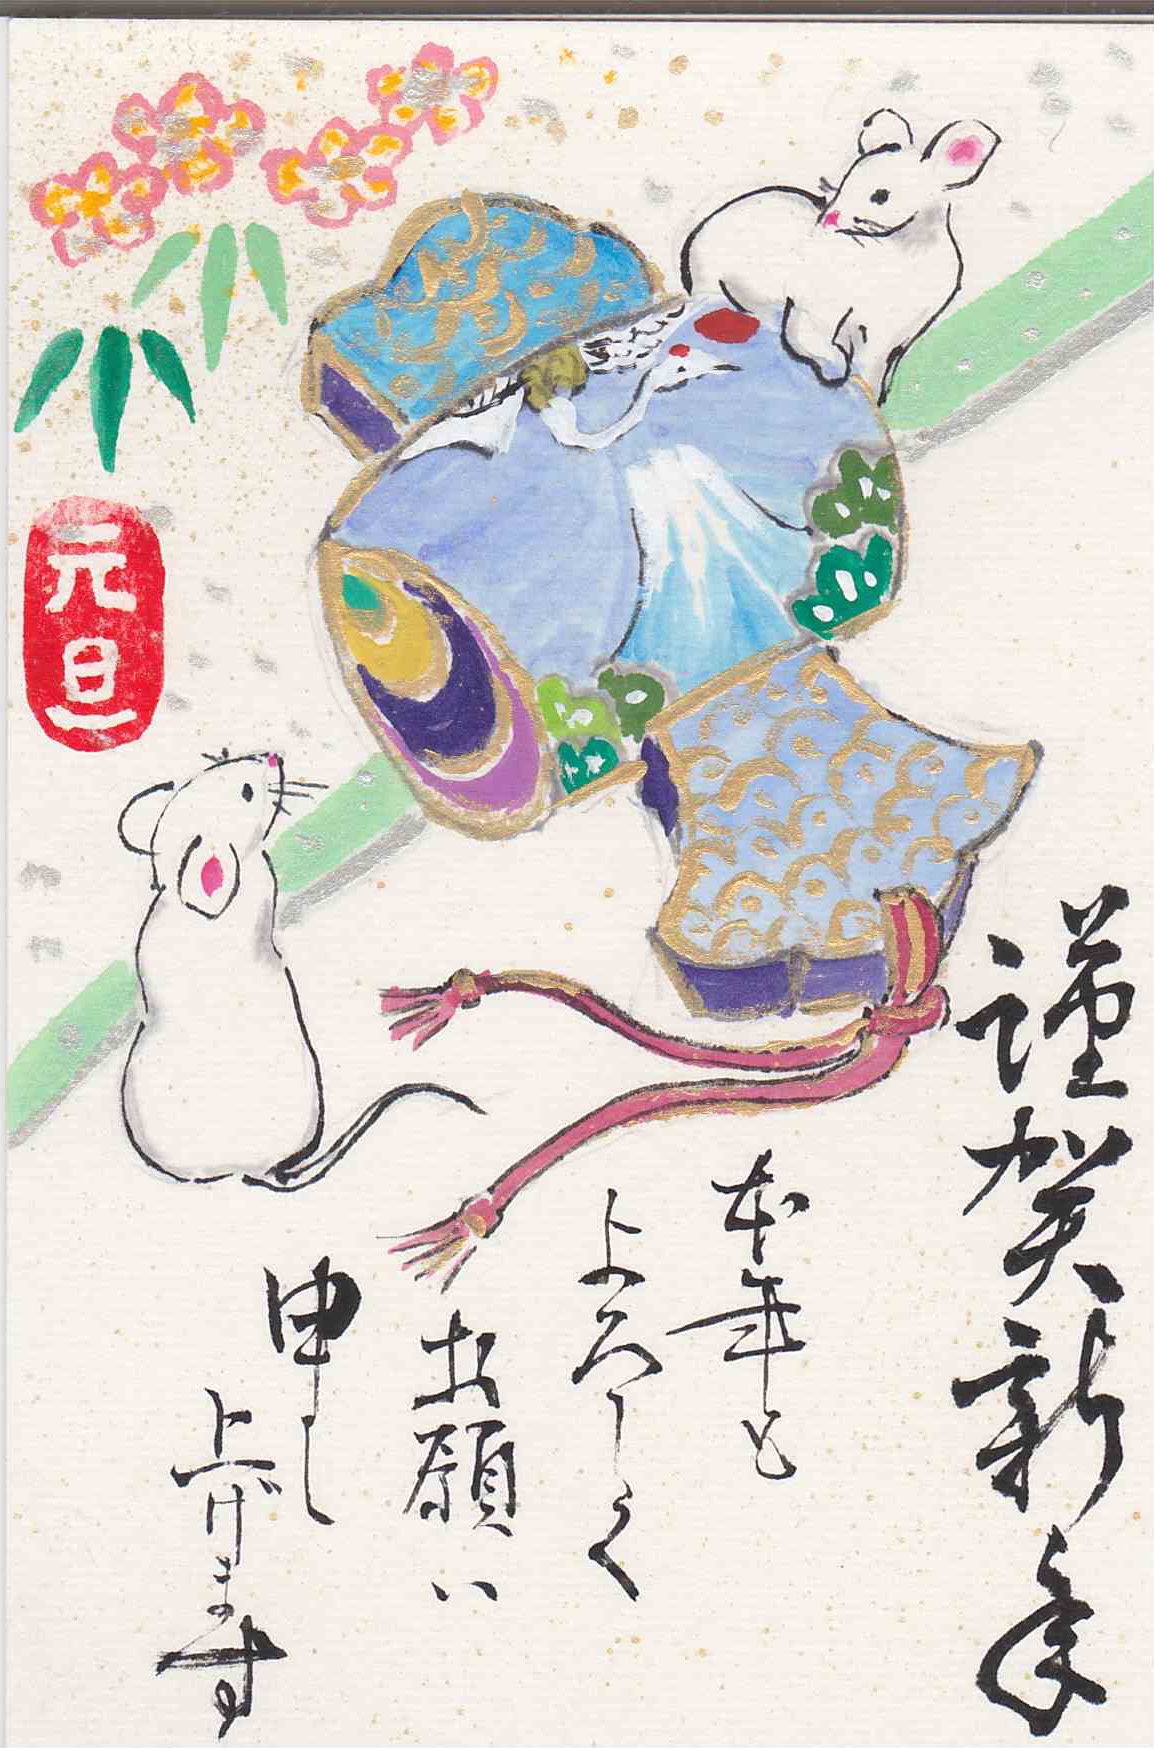 謹賀新年
本年も
よろしく
お願い
申し
上げます
元旦